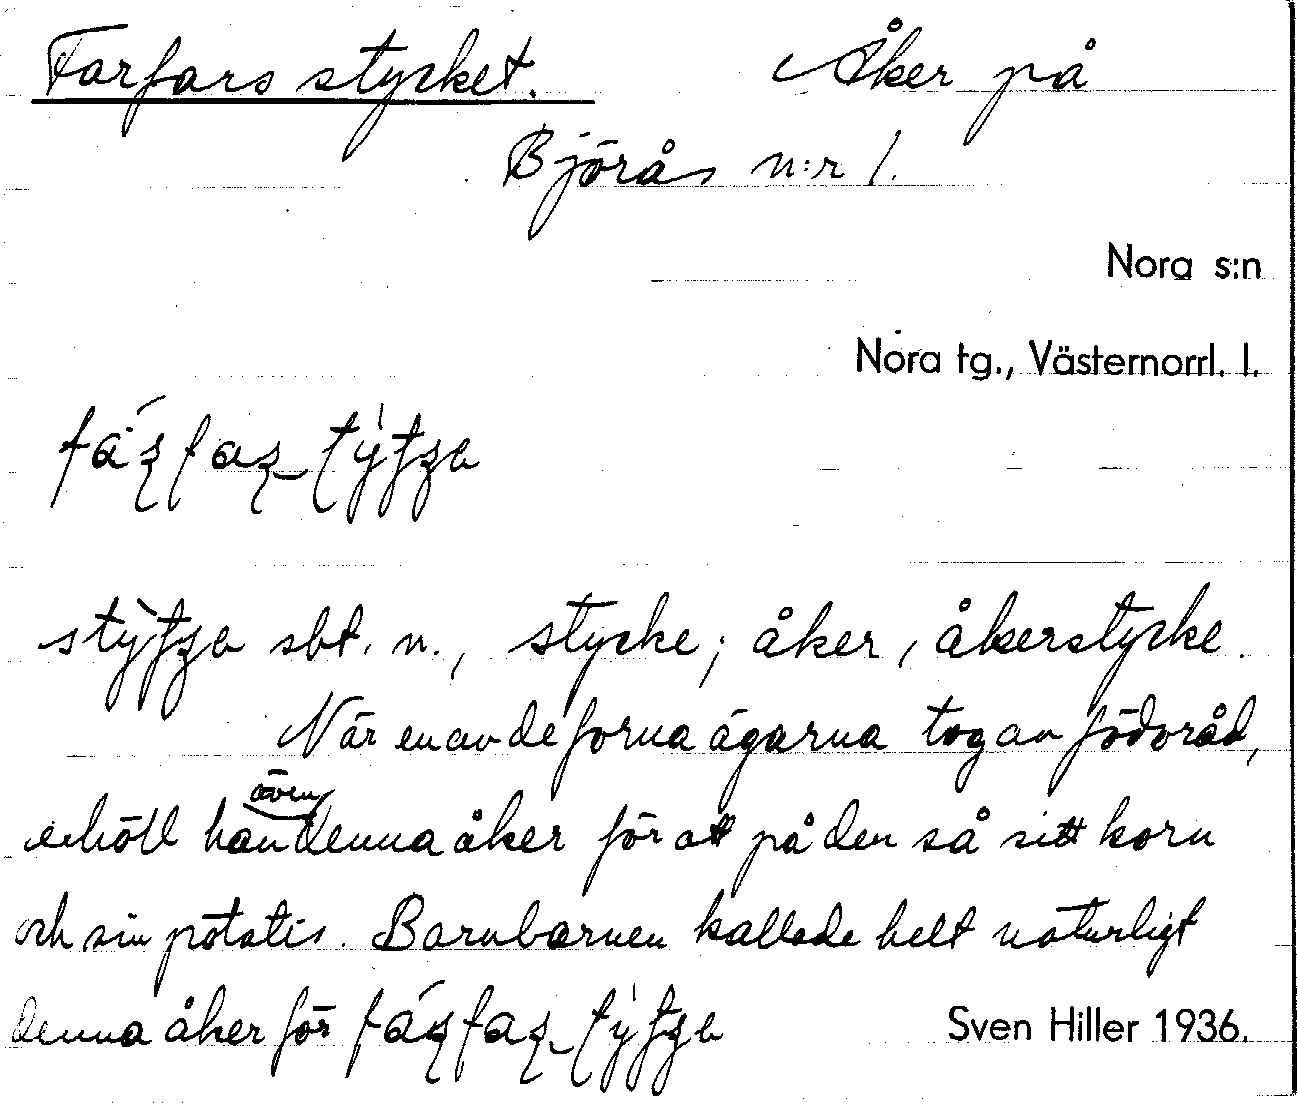 Farfars stycket. Åker på
Björås n:r 1.
Nora s:n
Nora tg., Västernorrl. l.
sbt. n., stycke; åker, åkerstycke.
När en av de forna ägarna tog av födoråd,
även
erhöll han denna åker för att på den så sitt korn
och sin potatis. Barnbarnen kallade helt naturligt
denna åker för
Sven Hiller 1936.